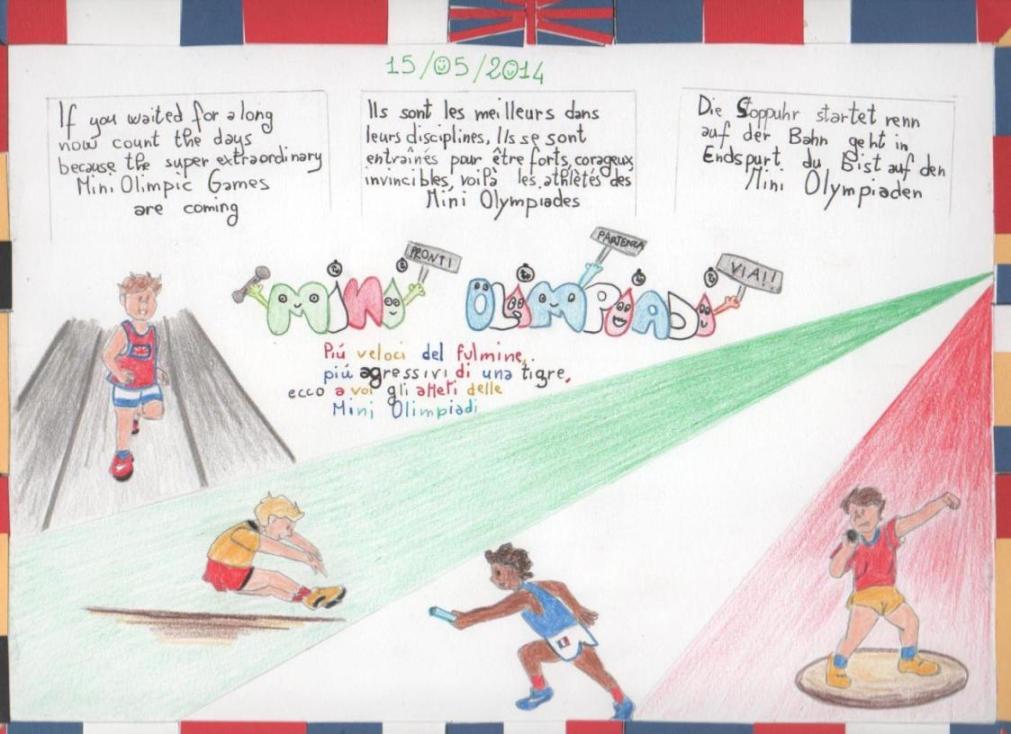 15/05/2014
If you waited for a long
now count the days
because the super extraordinary
Mini Olimpic Games
are coming
Ils sont les meilleurs dans
leurs disciplines, Ils se sont
entraînés pour être forts, corageux,
invincibles, voilà les athlètés des
Mini Olympiades
Die Stoppuhr startet renn
auf der Bahn geht in
Endspurt du Bist auf den
Mini Olympiaden
PRONTI
PARTENZA
VIA!!
MINI OLIMPIADI
Piú veloci del fulmine,
piú agressivi di una tigre,
ecco a voi gli atleti delle
Mini Olimpiadi